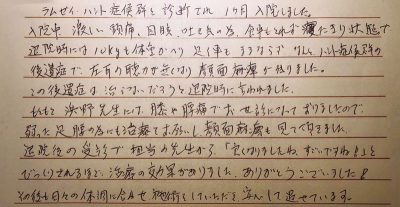 ラムゼイ・ハント症候群と診断され 1ヶ月入院しました。
入院中 激しい頭痛、目眩、吐き気の為、食事もとれず寝たきり状態で
退院時には 10kgも体重がへり 足腰もままならず なんと ハント症候群の
後遺症で、左耳の聴力が無くなり 顔面麻痺が残りました。
この後遺症は 治らないだろうと退院時に言われました。
もともと 浜野先生には、膝や腰痛でお世話になっておりましたので、
弱った足腰の為にも治療をお願いし 顔面麻痺も見て頂きました。
退院後の受診で 担当の先生から「良くなりましたね、すごいですね!」と
びっくりされるほど、治療の効果がありました。ありがとうございました!
その後も日々の体調に合わせ 施術をしていただき 安心して過せています。